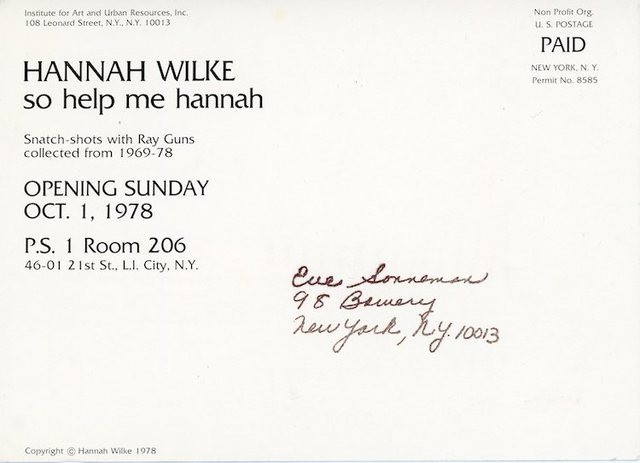 Institute for Art and Urban Resources, Inc.
108 Leonard Street, N.Y., N.Y. 10013
Non Profit Org.
U. S. POSTAGE
PAID
NEW YORK, N. Y.
Permit No. 8585
HANNAH WILKE
so help me hannah
Snatch-shots with Ray Guns
collected from 1969-78
OPENING SUNDAY
OCT. 1, 1978
P.S. 1 Room 206
46-01 21st St., L.I. City, N.Y.
Eve Sonneman
98 Bowery
New York, N.Y. 10013
Copyright © Hannah Wilke 1978